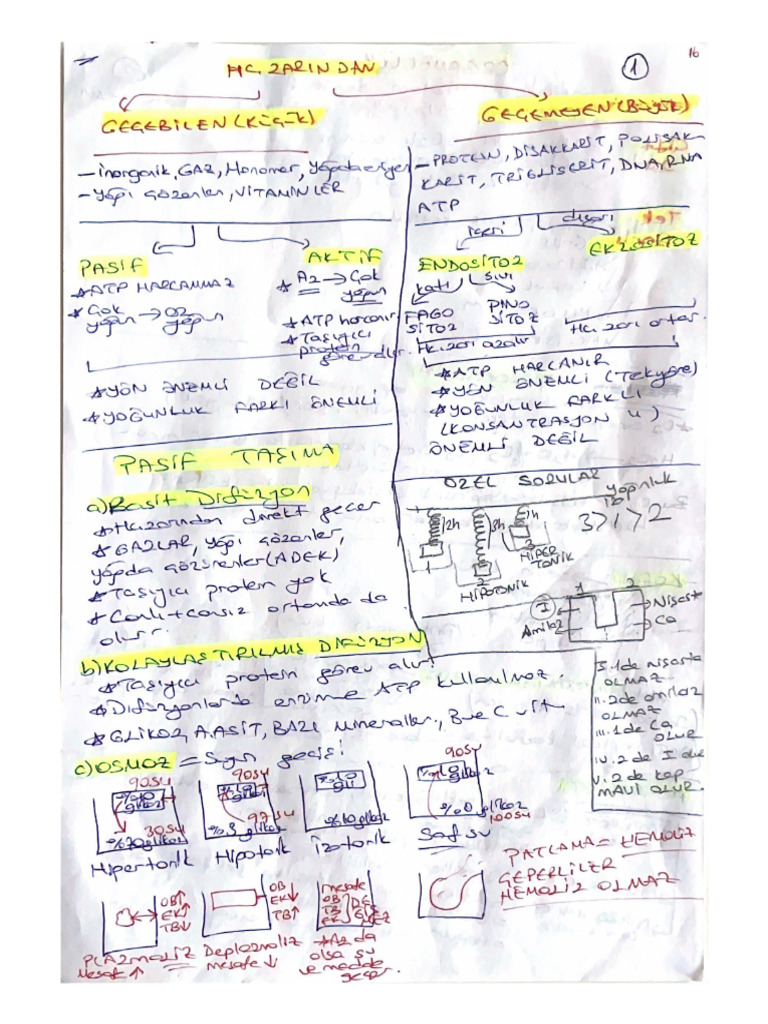 16
1
HC. ZARINDAN
GEÇEBİLEN (Küçük)
GEÇEMEYEN (Büyük)
- inorganik, GAZ, Monomer, yağda eriyen
- yağı çözenler, VİTAMİNLER
- PROTEİN, DİSAKKARİT, POLİSAK
KARİT, TRİGLİSERİT, DNA, RNA
ATP
PASİF
* ATP HARCANMAZ
* Çok yoğun → az yoğun
AKTİF
* AZ → Çok yoğun
* ATP harcanır
* Taşıyıcı protein görevlidir.
* YÖN ÖNEMLİ DEĞİL
* YOĞUNLUK FARKI ÖNEMLİ
içeri
dışarı
ENDOSİTOZ
EKZOSİTOZ
katı
sıvı
FAGO SİTOZ
PİNO SİTOZ
Hc. zarı azalır
Hc. zarı artar.
* ATP HARCANIR
* YÖN ÖNEMLİ (Tek yöne)
* YOĞUNLUK FARKLI
(KONSANTRASYON U)
ÖNEMLİ DEĞİL
PASİF TAŞIMA
a) Basit Difüzyon
* Hc. zarından direkt geçer
* GAZLAR, yağı çözenler,
yağda çözünenler (ADEK)
* Taşıyıcı protein yok
* Canlı + cansız ortamda da
olur.
b) KOLAYLAŞTIRILMIŞ DİFÜZYON
* Taşıyıcı protein görev alır.
* Difüzyonlarda enzim ve ATP kullanılmaz.
* GLİKOZ, A.ASİT, BAZI mineraller, B ve C vit
c) OSMOZ = Suyun geçişi
ÖZEL SORULAR
yoğunluk
3>1>2
2h
3h
1h
1
2
3
HİPER TONİK
HİPOTONİK
1
2
I
Amilaz
Nişasta
Ca
I. 1 de nişasta
OLMAZ
II. 2 de amilaz
OLMAZ
III. 1 de Ca
OLUR
IV. 2 de I olur
V. 2 de kap
MAVİ OLUR.
90su
%10 glikoz
30su
%70 glikoz
Hipertonik
90su
%10 glikoz
97su
%3 glikoz
Hipotonik
%10 gli
%10 glikoz
İzotonik
90su
%10 glikoz
%0 glikoz
100su
Saf su
OB↑
EK↑
TB↓
PLAZMOLİZ
Mesafe ↑
OB↓
EK↓
TB↑
Deplazmoliz
mesafe ↓
mesafe
OB
TB
EK
DEĞİŞMEZ
* Az da
olsa su
ve madde
geçer.
PATLAMA = HEMOLİZ
ÇEPERLİLER
HEMOLİZ OLMAZ